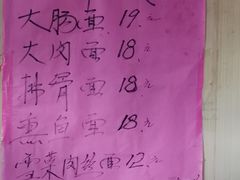 大肠面 19.元
大肉面 18.元
排骨面 18.元
熏鱼面 18.元
雪菜肉丝面 12.元